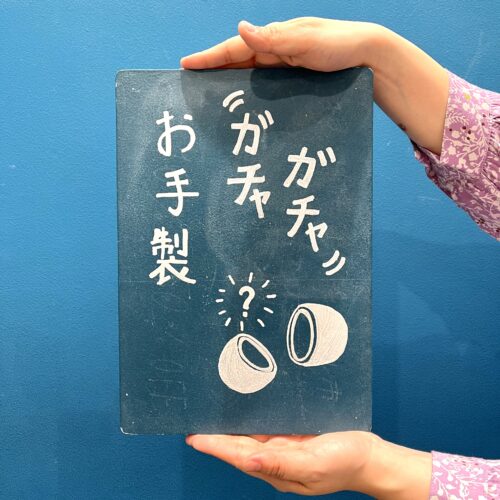 ガチャ
ガチャ
お手製
?